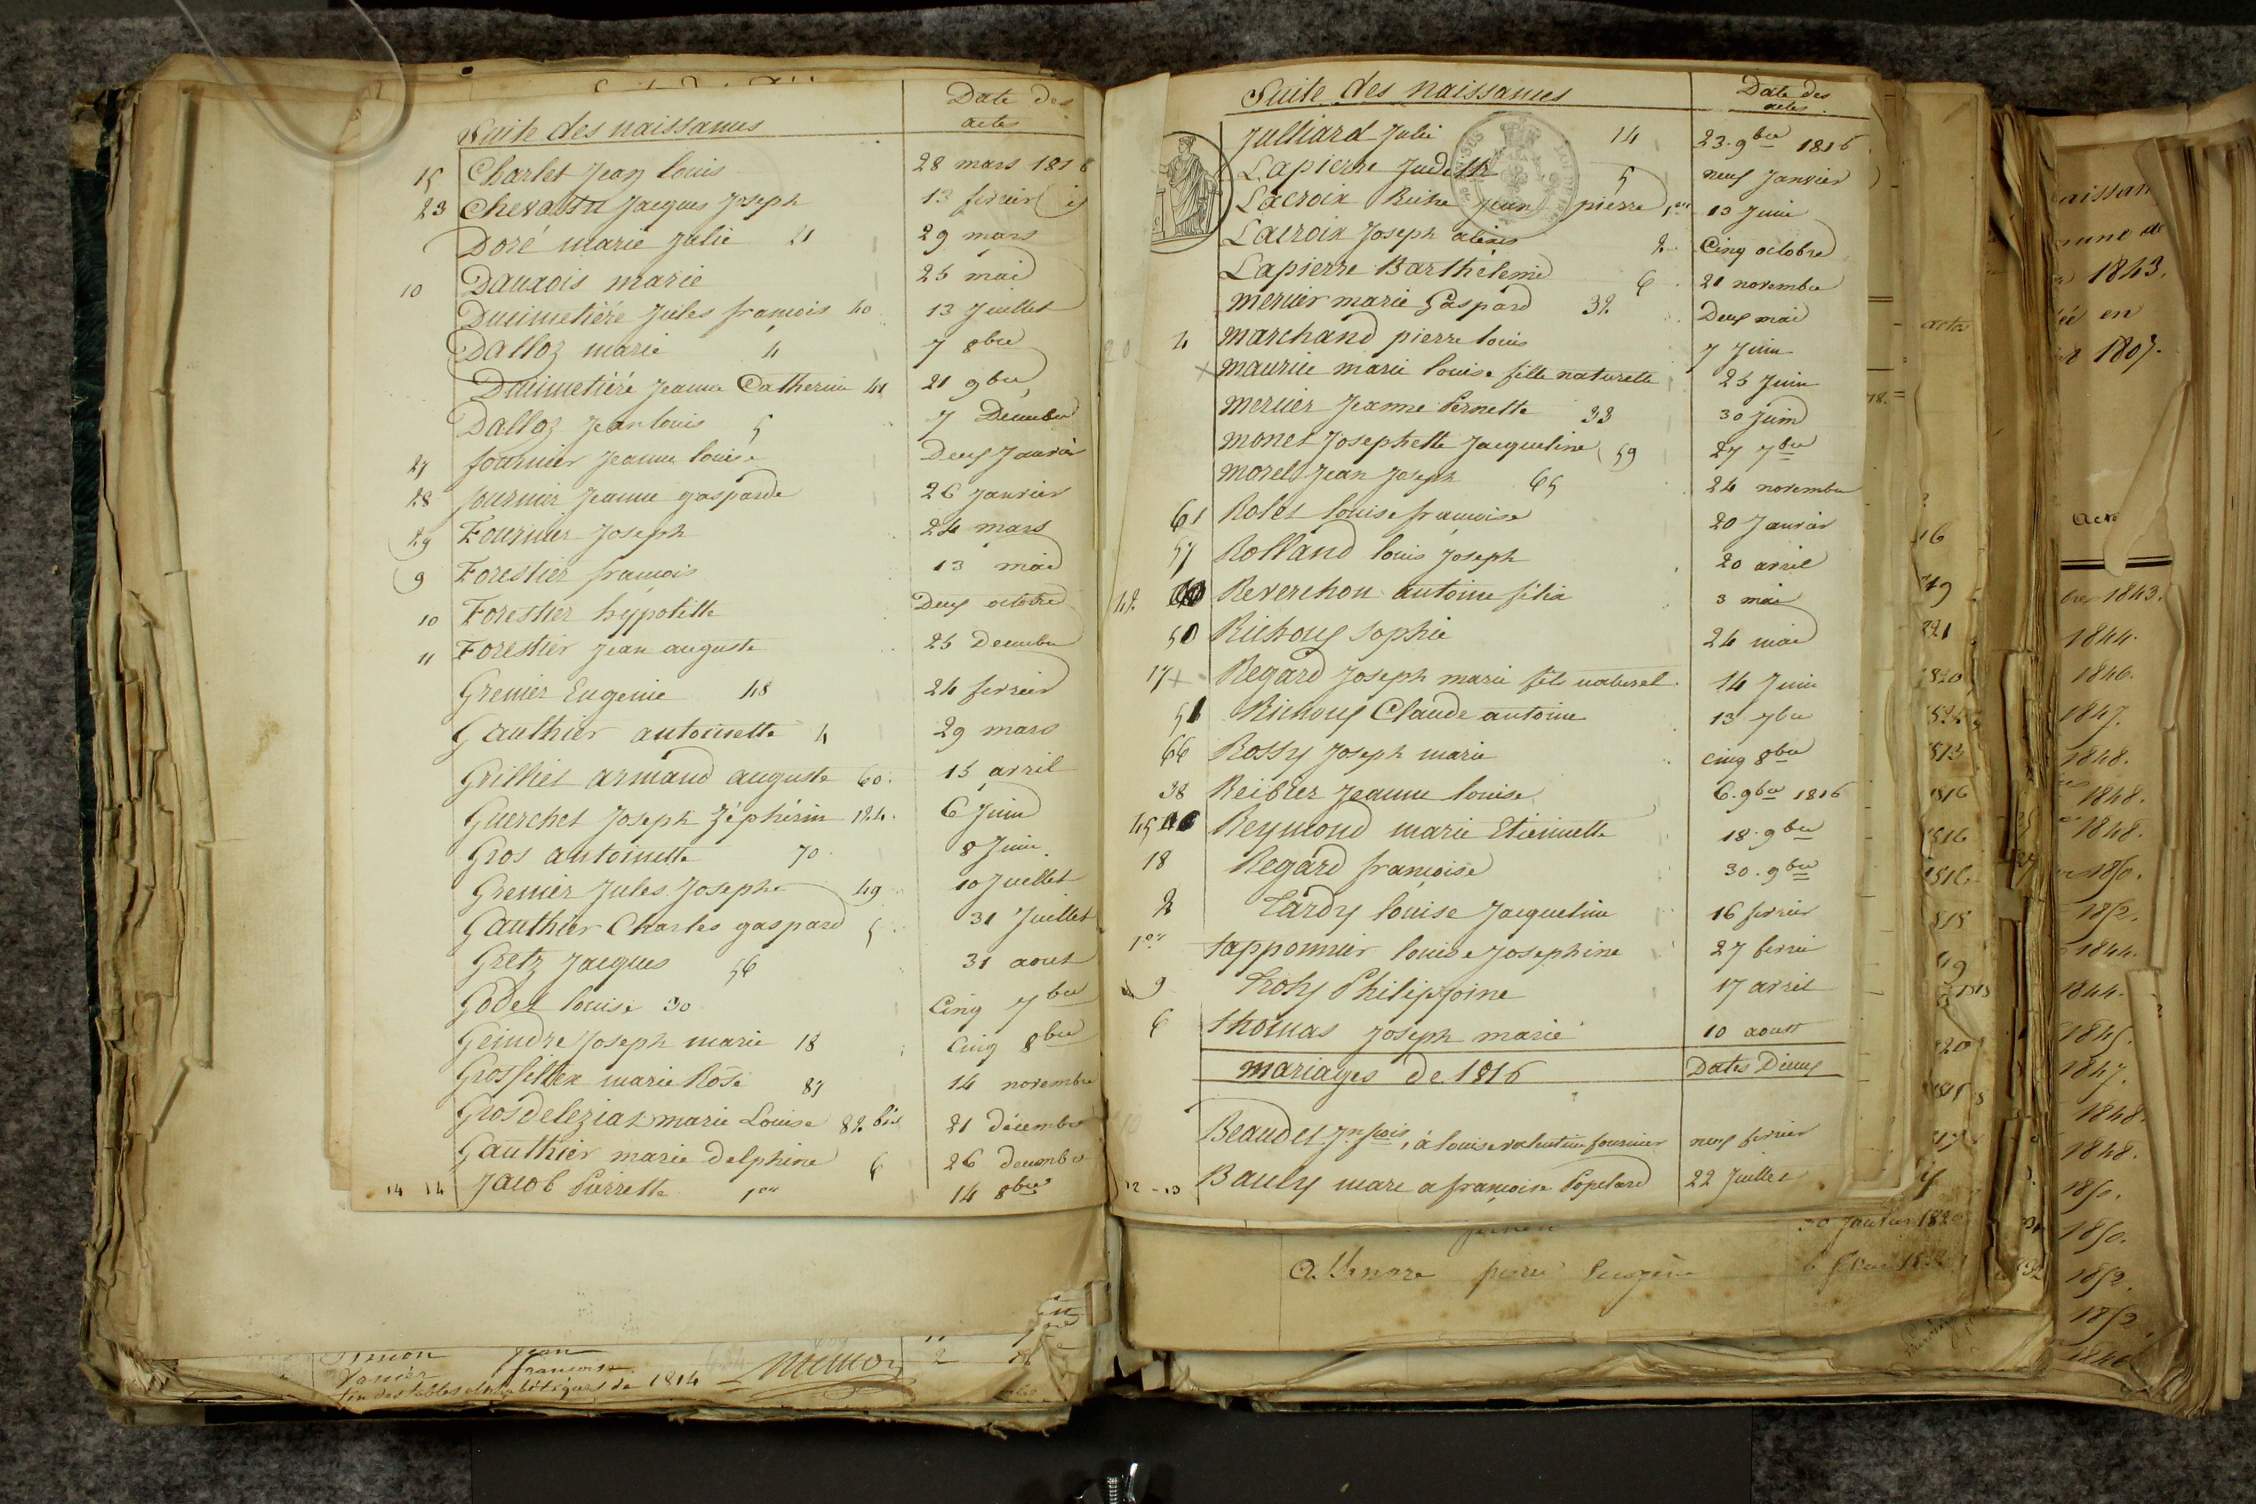 Suite des naissances Date des actes
15 Charlet Jean louis 28 mars 1816
23 Chevassu Jacques Joseph 13 fevrier
Doré marie Julie 21 29 mars
10 Dauxois marie 25 mai
Ducimetière Jules francois 40 13 Juillet
Dalloz marie 4 7 8bre
Ducimetière Jeanne Catherine 41 21 9bre
Dalloz Jean louis 5 7 Décembre
27 fournier Jeanne louise Deux Janvier
28 fournier Jeanne gasparde 26 Janvier
29 Fournier Joseph 24 mars
9 Forestier francois 13 mai
10 Forestier hypolitte Deux octobre
11 Forestier Jean auguste 25 Decembre
Grenier Eugenie 48 24 fevrier
Gauthier antoinette 4 29 mars
Grilliet armand auguste 60 15 avril
Guerchet Joseph Zéphirin 124 6 Juin
Gros antoinette 70 8 Juin
Grenier Jules Joseph 49 10 Juillet
Gauthier Charles gaspard 5 31 Juillet
Gretz Jacques 56 31 aout
Godet louise 30 Cinq 7bre
Geindre Joseph marie 18 Cinq 8bre
Grosfillex marie Rose 81 14 novembre
Grosdelezias marie Louise 82 bis 21 décembre
Gauthier marie delphine 6 26 decembre
14 14 Jacob Pierrette 1er 14 8bre
Simon Jean
Vanier francoise
fin des tables alphabétiques de 1814
Suite des naissances Date des actes
Julliard Julie 14 23 9bre 1816
Lapierre Judith 5 neuf Janvier
Lacroix Riche Jean pierre 1er 13 Juin
Lacroix Joseph alexis 2 Cinq octobre
Lapierre Barthélemie 6 21 novembre
mercier marie Gaspard 32 Deux mai
4 marchand pierre louis 7 Juin
x mauriie marie louise fille naturelle 25 Juin
mercier Jeanne Pernette 33 30 Juin
monet Josephette Jacqueline 59 27 7bre
morel Jean Joseph 65 24 novembre
61 Rolet louise francoise 20 Janvier
57 Rolland louis Joseph 20 avril
42 Reverchon antoine félix 3 mai
50 Richoux Sophie 24 mai
17 x Regard Joseph marie fils naturel 14 Juin
51 Richoux Claude antoine 13 7bre
66 Rossy Joseph marie cinq 8bre
38 Reibier Jeanne louise 6 9bre 1816
45 Reymond marie Etiennette 18 9bre
18 Regard francoise 30 9bre
2 Tardy louise Jacqueline 16 fevrier
1er tapponnier louise Josephine 27 fevrier
9 Trosy Philippine 17 avril
6 thomas Joseph marie 10 aoust
mariages de 1816 Dates D'iceux
Beaudet Jn fcois, à louise valentine fournier neuf fevrier
Bauly marc a francoise Popelard 22 Juillet
30 Janvier 1820
pierre
1843.
en
1807.
1843.
1844.
1846.
1847.
1848.
1848.
1848.
1850.
1852.
1844.
1844.
1845.
1847.
1848.
1848.
1850.
1850.
1852.
1852.